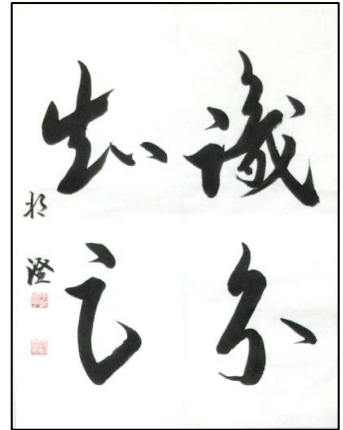 識分
知足
澄